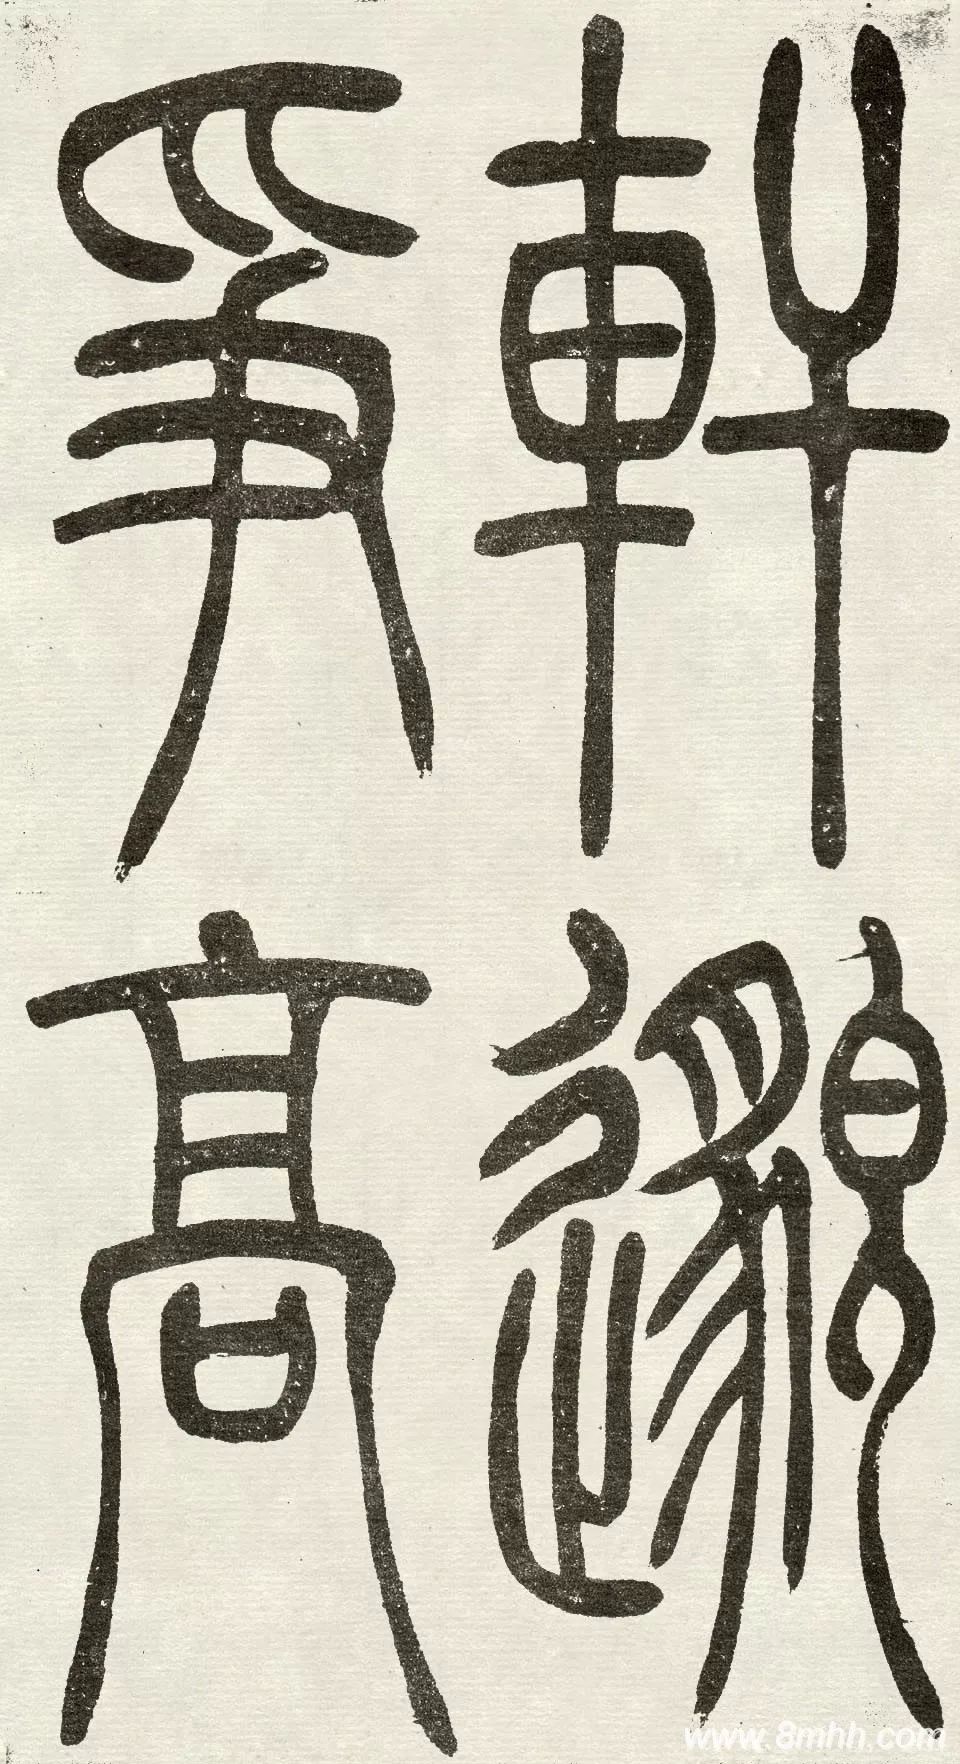 軒邈
爭高
www.8mhh.com